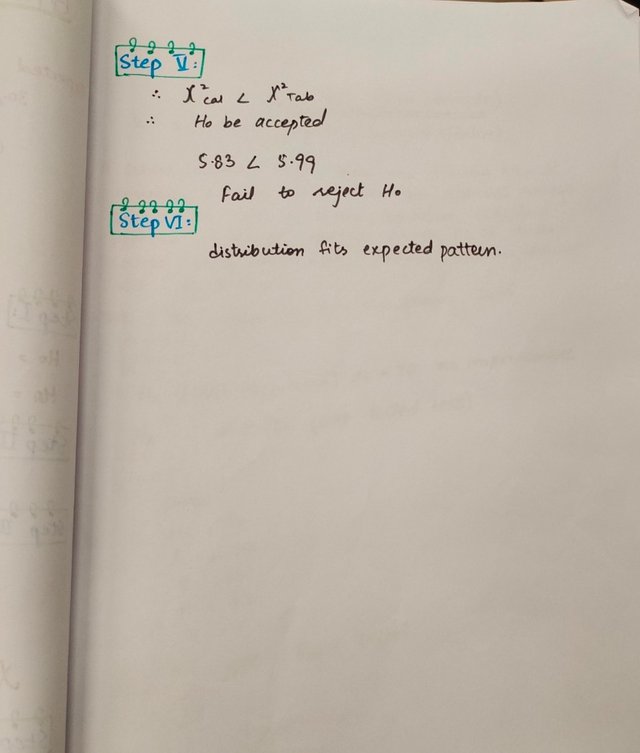 Step V:
∴ χ²cal < χ²Tab
∴ Ho be accepted
5.83 < 5.99
Fail to reject Ho
Step VI:
distribution fits expected pattern.